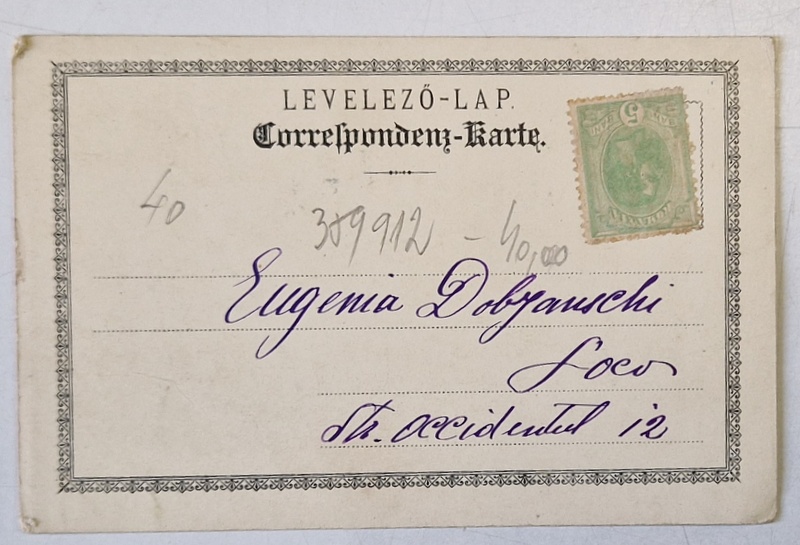 LEVELEZŐ-LAP.
Correspondenz-Karte.
5
40
389912 - 40,000
Eugenia Dobzanschi
Loco
Str. Occidentul 12